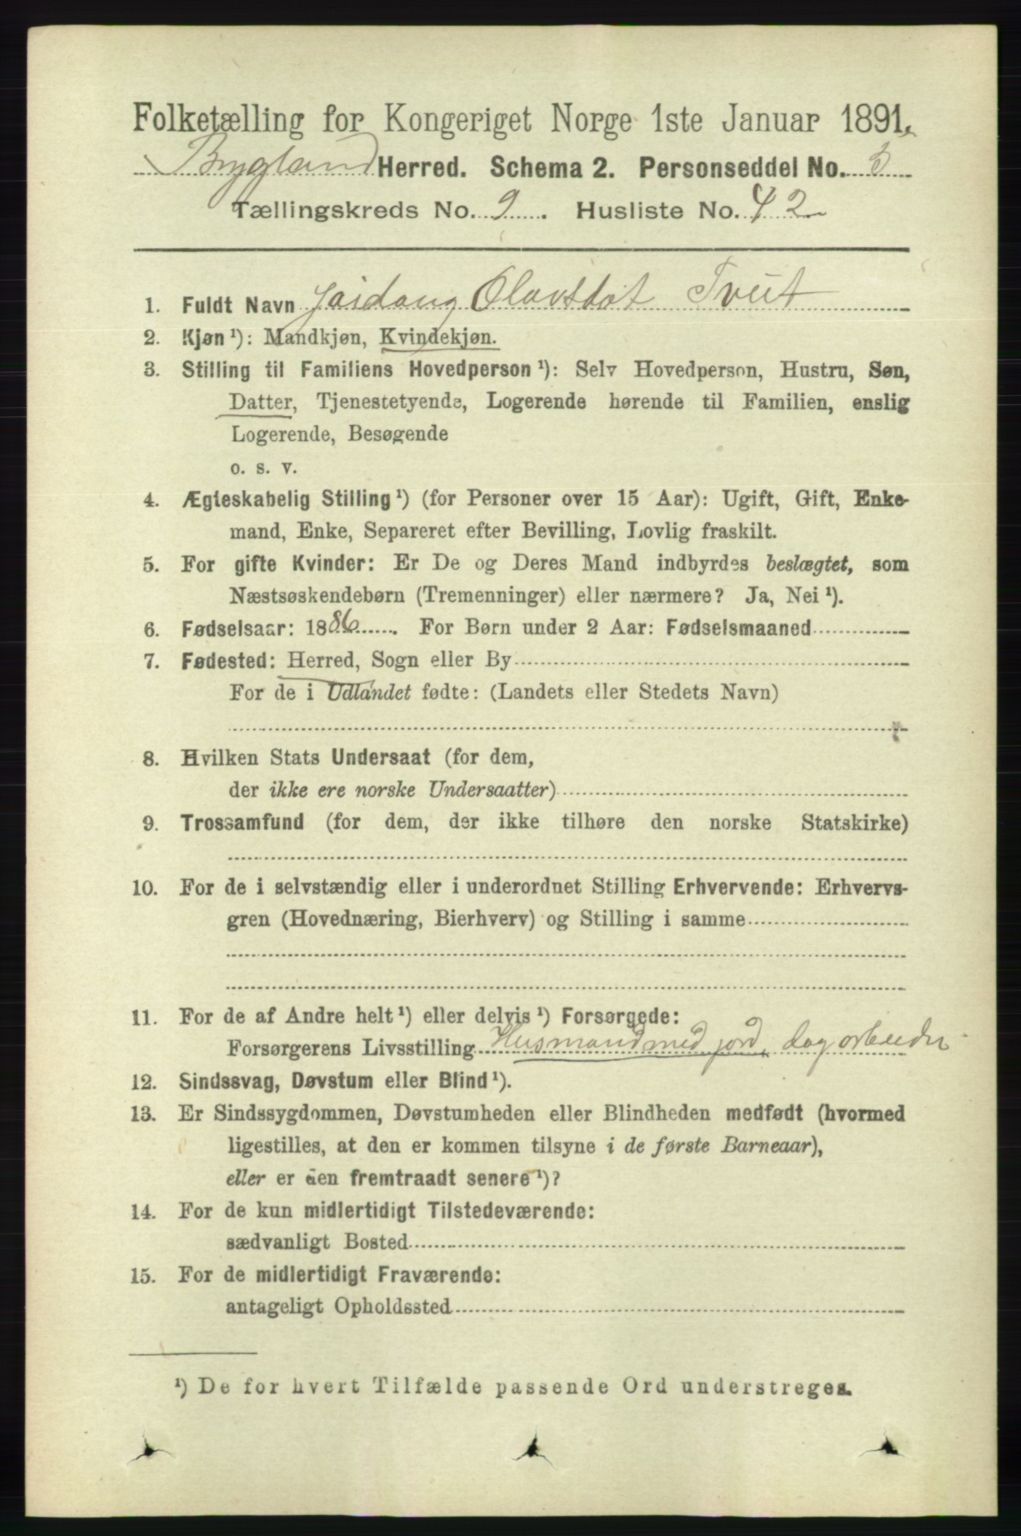 Folketælling for Kongeriget Norge 1ste Januar 1891.
Bygland Herred. Schema 2. Personseddel No. 3
Tællingskreds No. 9. Husliste No. 42
1. Fuldt Navn Olavsdot Tveit
2. Kjøn ¹): Mandkjøn, Kvindekjøn.
3. Stilling til Familiens Hovedperson ¹): Selv Hovedperson, Hustru, Søn,
Datter, Tjenestetyende, Logerende hørende til Familien, enslig
Logerende, Besøgende
o. s. v.
4. Ægteskabelig Stilling ¹) (for Personer over 15 Aar): Ugift, Gift, Enke-
mand, Enke, Separeret efter Bevilling, Lovlig fraskilt.
5. For gifte Kvinder: Er De og Deres Mand indbyrdes beslægtet, som
Næstsøskendebørn (Tremenninger) eller nærmere? Ja, Nei ¹).
6. Fødselsaar: 1886. For Børn under 2 Aar: Fødselsmaaned
7. Fødested: Herred, Sogn eller By
For de i Udlandet fødte: (Landets eller Stedets Navn)
8. Hvilken Stats Undersaat (for dem,
der ikke ere norske Undersaatter)
9. Trossamfund (for dem, der ikke tilhøre den norske Statskirke)
10. For de i selvstændig eller i underordnet Stilling Erhvervende: Erhvervs-
gren (Hovednæring, Bierhverv) og Stilling i samme
11. For de af Andre helt ¹) eller delvis ¹) Forsørgede:
Forsørgerens Livsstilling Husmand med jord, dagarbeider
12. Sindssvag, Døvstum eller Blind ¹).
13. Er Sindssygdommen, Døvstumheden eller Blindheden medfødt (hvormed
ligestilles, at den er kommen tilsyne i de første Barneaar),
eller er den fremtraadt senere ¹)?
14. For de kun midlertidigt Tilstedeværende:
sædvanligt Bosted
15. For de midlertidigt Fraværende:
antageligt Opholdssted
¹) De for hvert Tilfælde passende Ord understreges.